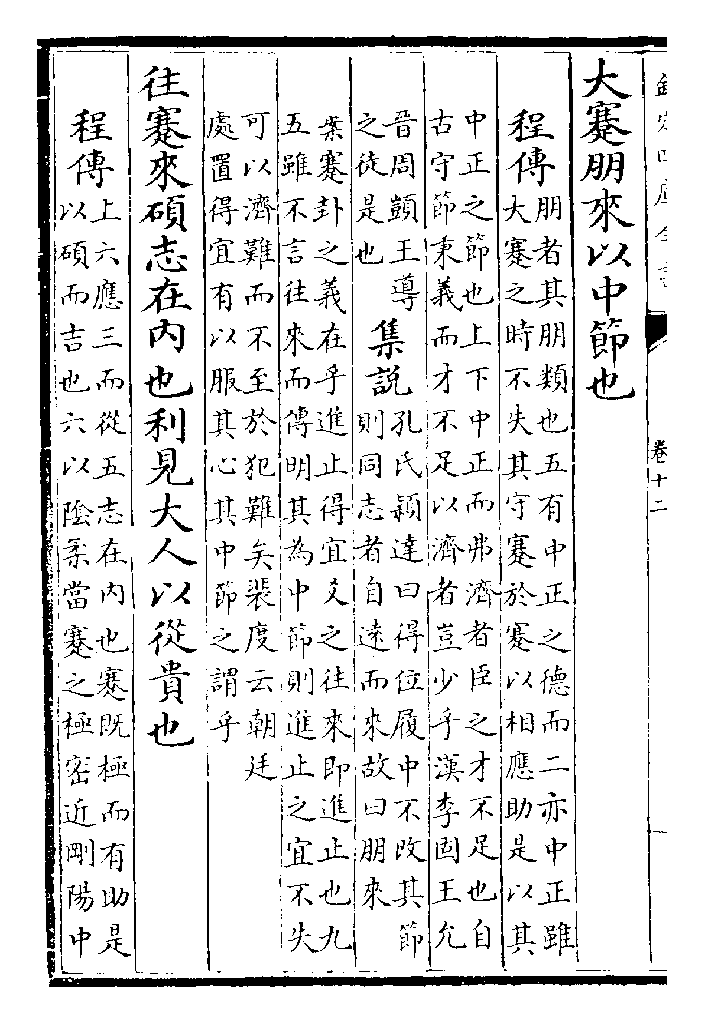 欽定四庫全書
卷十二
大蹇朋來以中節也
程傳
朋者其朋類也五有中正之德而二亦中正雖
大蹇之時不失其守蹇於蹇以相應助是以其
中正之節也上下中正而弗濟者臣之才不足也自
古守節秉義而才不足以濟者豈少乎漢李固王允
晉周顗王導
之徒是也
集說
孔氏穎達曰得位履中不改其節
則同志者自遠而來故曰朋來
案蹇卦之義在乎進止得宜爻之往來即進止也九
五雖不言往來而傳明其為中節則進止之宜不失
可以濟難而不至於犯難矣裴度云朝廷
處置得宜有以服其心其中節之謂乎
往蹇來碩志在內也利見大人以從貴也
程傳
上六應三而從五志在內也蹇既極而有助是
以碩而吉也六以陰柔當蹇之極密近剛陽中